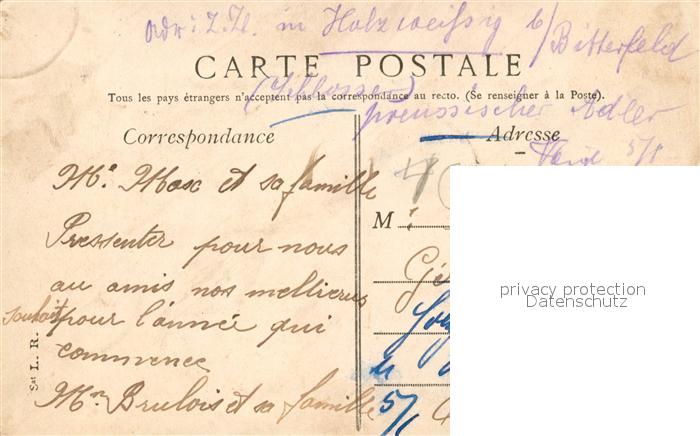 Adr: Z. Zt. in Holzweißig b/ Bitterfeld
CARTE POSTALE
Tous les pays étrangers n'acceptent pas la correspondance au recto. (Se renseigner à la Poste).
(Schlosser)
preussischer Adler
Correspondance
Adresse
5/1
Mr. Max et sa famille
Pressenter pour nous
au amis nos mellierus
souhait pour l'année qui
commence
Mr Brulois et sa famille
M
u
5/1
Sst L. R.
privacy protection
Datenschutz